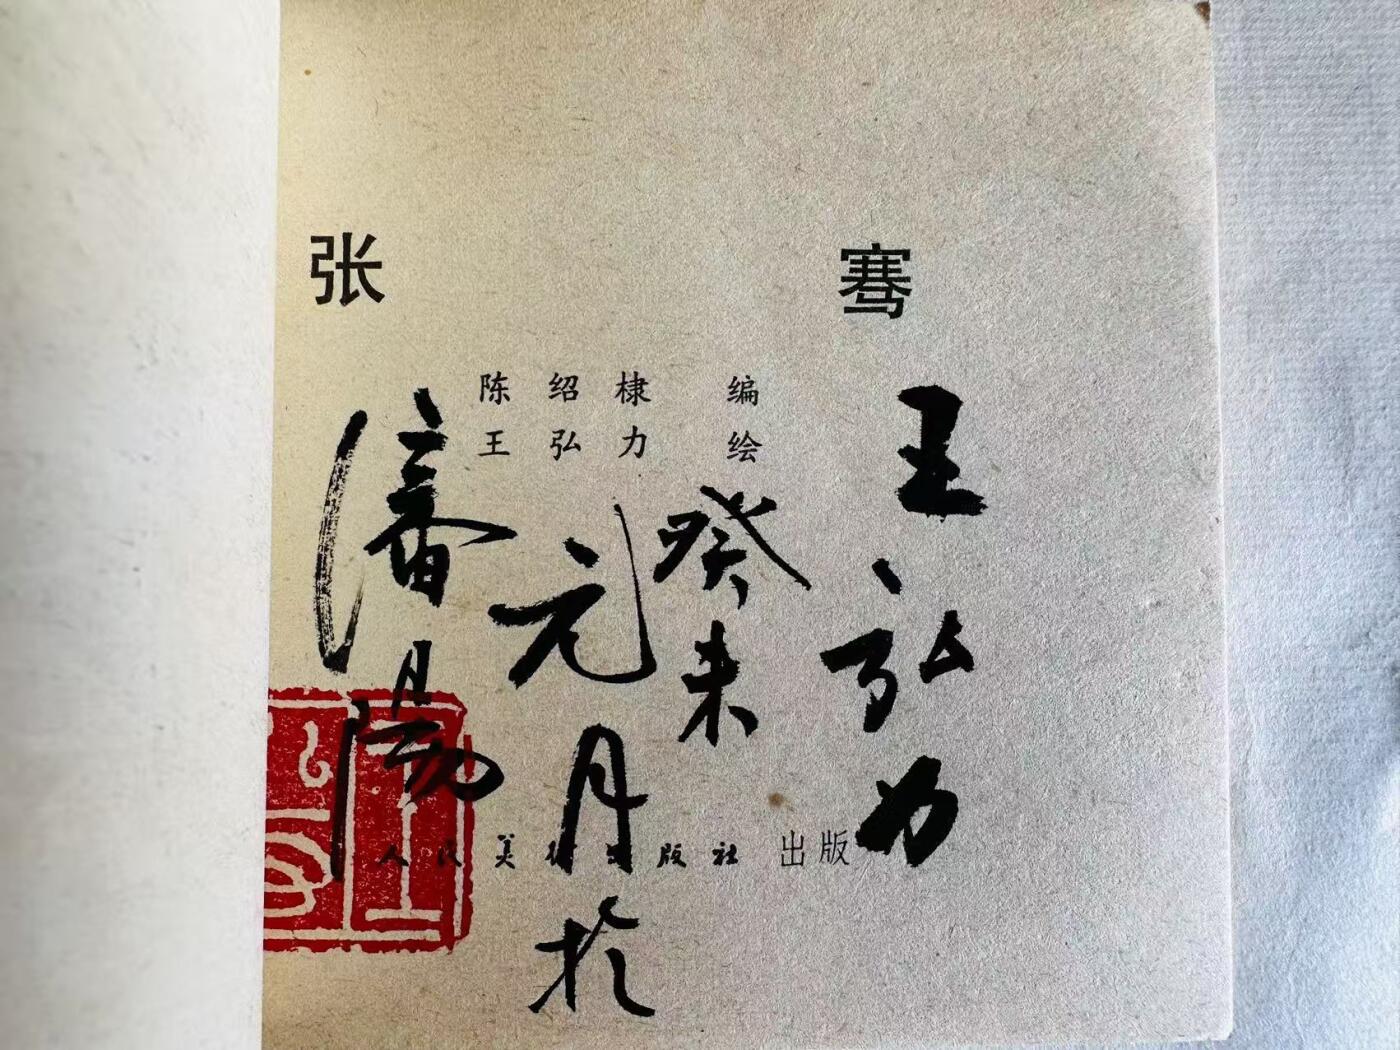 张骞
陈绍棣 编
王弘力 绘
人民美术出版社 出版
王弘力
癸未
元月于
瀋陽